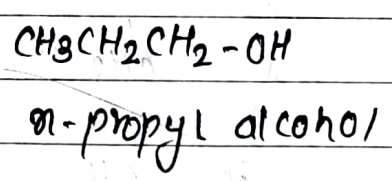 CH3CH2CH2-OH
n-propyl alcohol